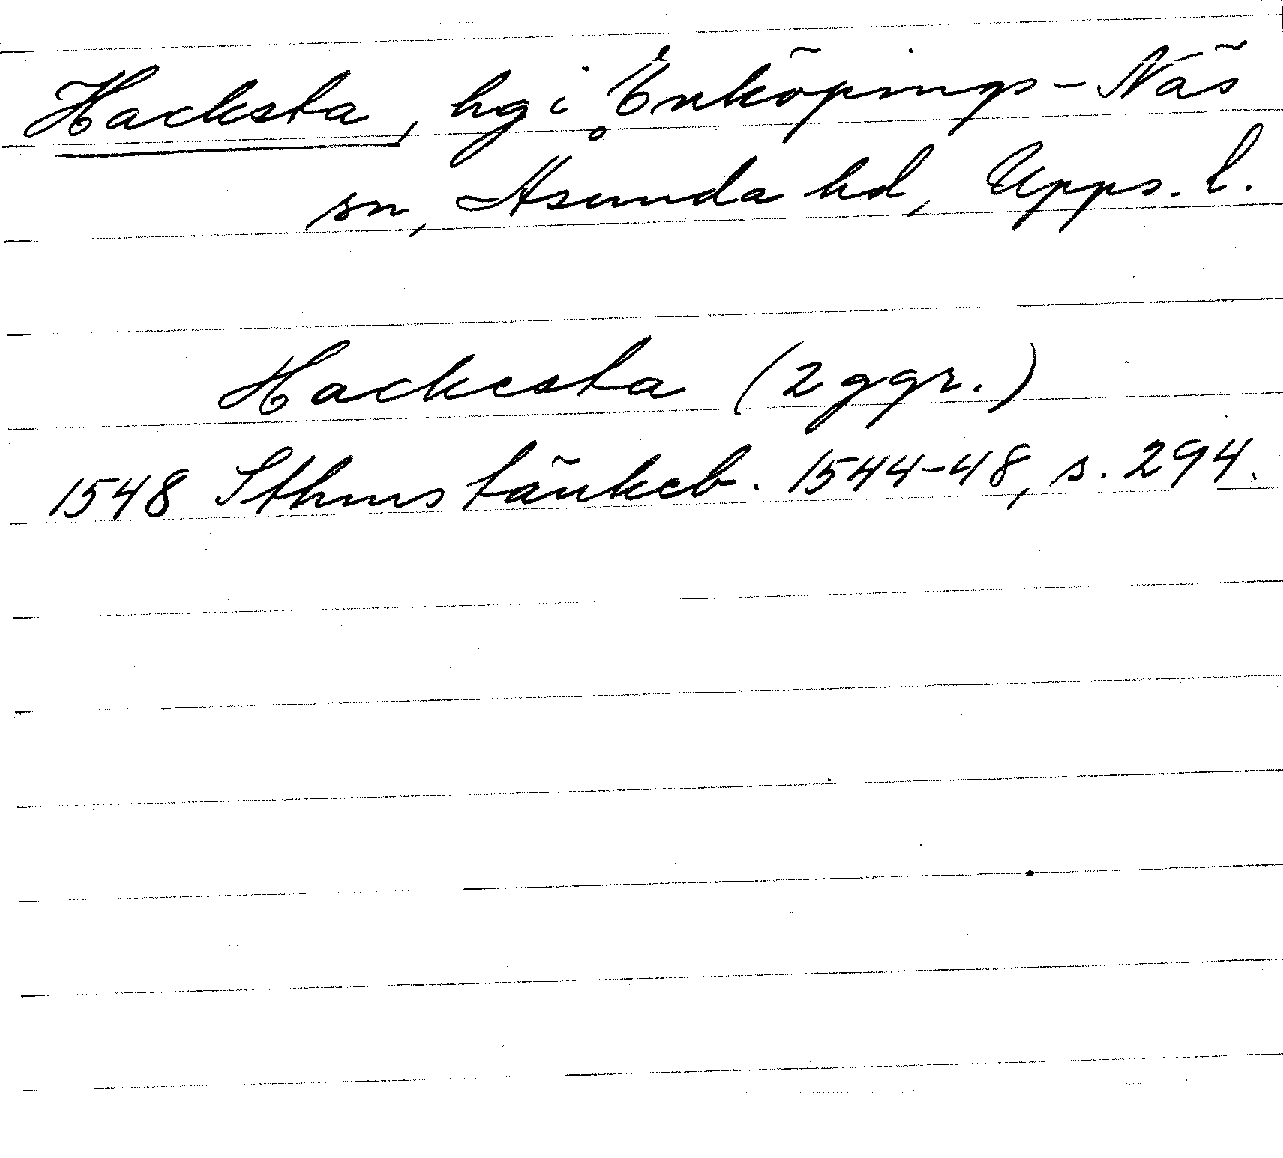 Hacksta, hg i Enköpings-Näs
sn, Åsunda hd, Upps. l.
Hackesta (2 ggr.)
1548 Sthms tänkeb. 1544-48, s. 294.